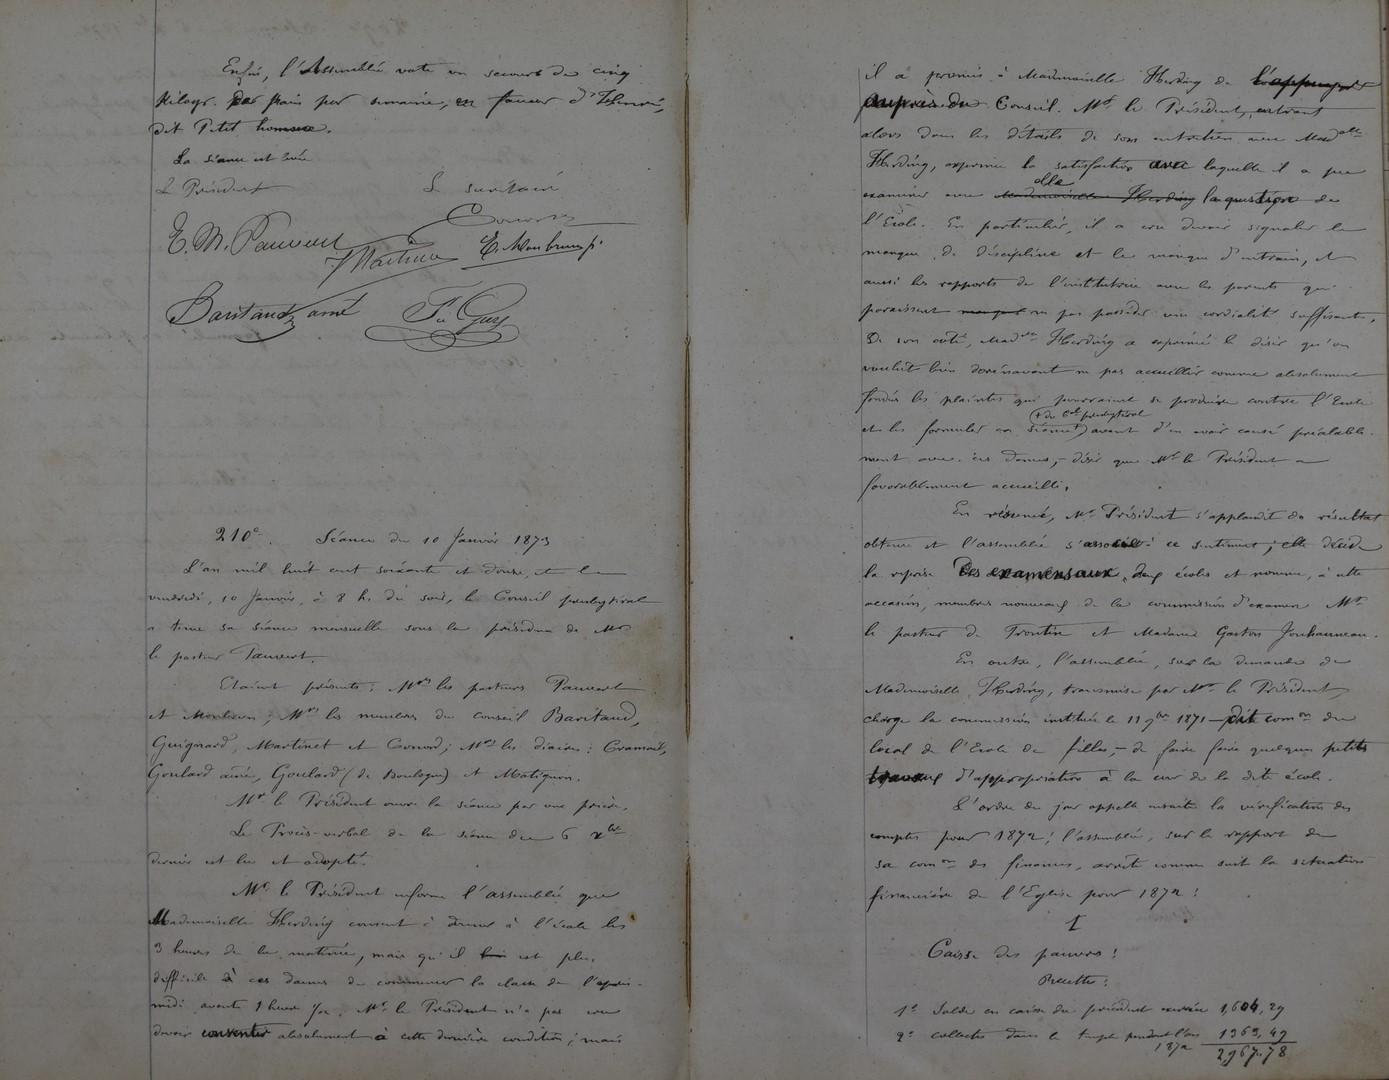 Enfin, l'Assemblée vote un secours de cinq
kilogr. de pain par semaine, en faveur d'
dit Petit homme.
La séance est levée
Le Président Le secrétaire
E. M. Pauvert
Martinet E. Monbrun p.
Baritaud aîné F. Guy
210e. Séance du 10 Janvier 1873
L'an mil huit cent soixante et douze, et le
vendredi, 10 Janvier, à 8 h. du soir, le Conseil presbytéral
a tenu sa séance mensuelle sous la présidence de Mr
le pasteur Pauvert.
Etaient présents : Mrs les pasteurs Pauvert
et Monbrun ; Mrs les membres du conseil Baritaud,
Guignard, Martinet et ; Mrs les diacres :
Goulard aîné, Goulard (de Boulogne) et Matignon.
Mr le Président ouvre la séance par une prière.
Le Procès-verbal de la séance du 6 Xbre
dernier est lu et adopté.
Mr le Président informe l'assemblée que
Mademoiselle Herding consent à donner à l'école les
3 heures de la matinée, mais qu'il est plus
difficile à ces dames de commencer la classe de l'après-
midi avant 1 heure 1/2. Mr le Président n'a pas cru
devoir consentir absolument à cette dernière condition ; mais
il a promis à Mademoiselle Herding de l'appuyer
auprès du Conseil. Mr le Président, entrant
alors dans les détails de son entretien avec Madelle
Herding, exprime la satisfaction avec laquelle il a pu
examiner avec Mademoiselle Herding elle la question de
l'Ecole. En particulier, il a cru devoir signaler le
manque de discipline et le manque d'entrain, et
aussi les rapports de l'institutrice avec les parents qui
paraissent ne pas posséder une cordialité suffisante.
De son côté, Madelle Herding a exprimé le désir qu'on
voulût bien dorénavant ne pas accueillir comme absolument
fondés les plaintes qui pourraient se produire contre l'Ecole
et les formuler en séance (+ du Cel presbytéral) avant d'en avoir causé préalable-
ment avec ces dames, - désir que Mr le Président a
favorablement accueilli.
En résumé, Mr Président s'applaudit du résultat
obtenu et l'assemblée s'associe à ce sentiment ; elle décide
la reprise des examens aux deux écoles et nomme, à cette
occasion, membres nouveaux de la commission d'examen Mr
le pasteur de Trontin et Madame Gaston Jouhanneau.
En outre, l'assemblée, sur la demande de
Mademoiselle Herding, transmise par Mr le Président,
charge la commission instituée le 11 9bre 1871 - dite comon du
local de l'Ecole de filles, - de faire faire quelques petits
travaux d'appropriation à la cour de la dite école.
L'ordre du jour appelle ensuite la vérification des
comptes pour 1872 ; l'assemblée, sur le rapport de
sa comon des finances, arrête comme suit la situation
financière de l'Eglise pour 1872 :
I
Caisse des pauvres :
Recette :
1° Solde en caisse du précédent exercice 1,604,29
2° collectes dans le temple pendant l'an 1872 1363,49
2,967,78